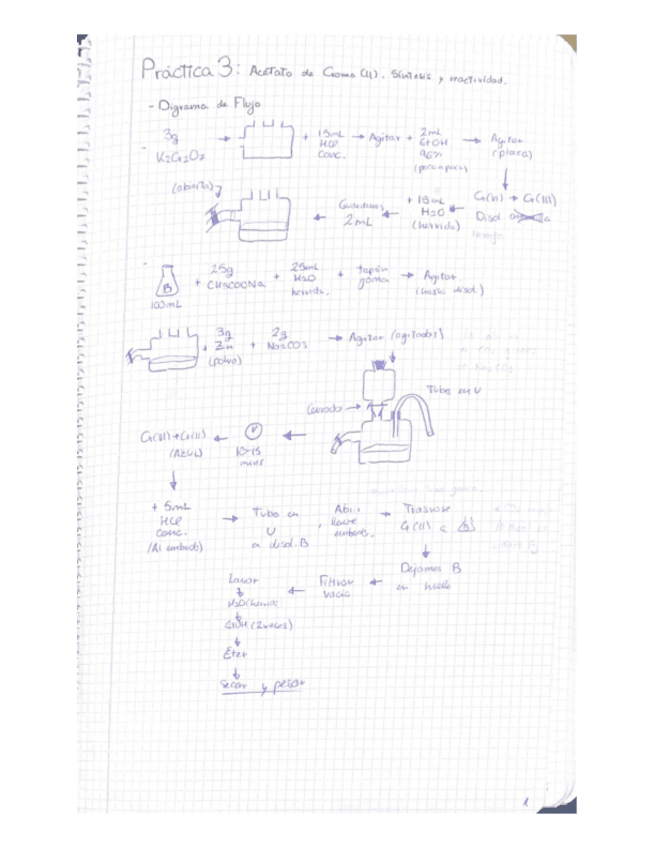 Práctica 3: Acetato de Cromo (II). Síntesis y reactividad.
- Digrama de Flujo
3g K2Cr2O7 → + 15mL HCl conc. → Agitar + 2mL EtOH 96% (poco a poco) → Agitar (placa)
Cr(VI) → Cr(III)
Disol
+ 15mL H2O (hervida)
2mL
(abierta)
B
100mL
+ 25g CH3COONa + 25mL H2O hervida. + tapón goma → Agitar
+ 3g Zn (polvo) + 2g Na2CO3 → Agitar (agitador)
Tubo en U
Cerrado →
10-15 mins
Cr(III)→Cr(II) ←
(AZUL)
+ 5mL HCl conc. (Al embudo) → Tubo en U a disol. B , Abrir llave embudo. → Trasvase Cr(II) a B
Dejamos B en hielo
← Filtrar vacío
← Lavar
H2O (hervida)
EtOH (2 veces)
Éter
Secar y pesar
1